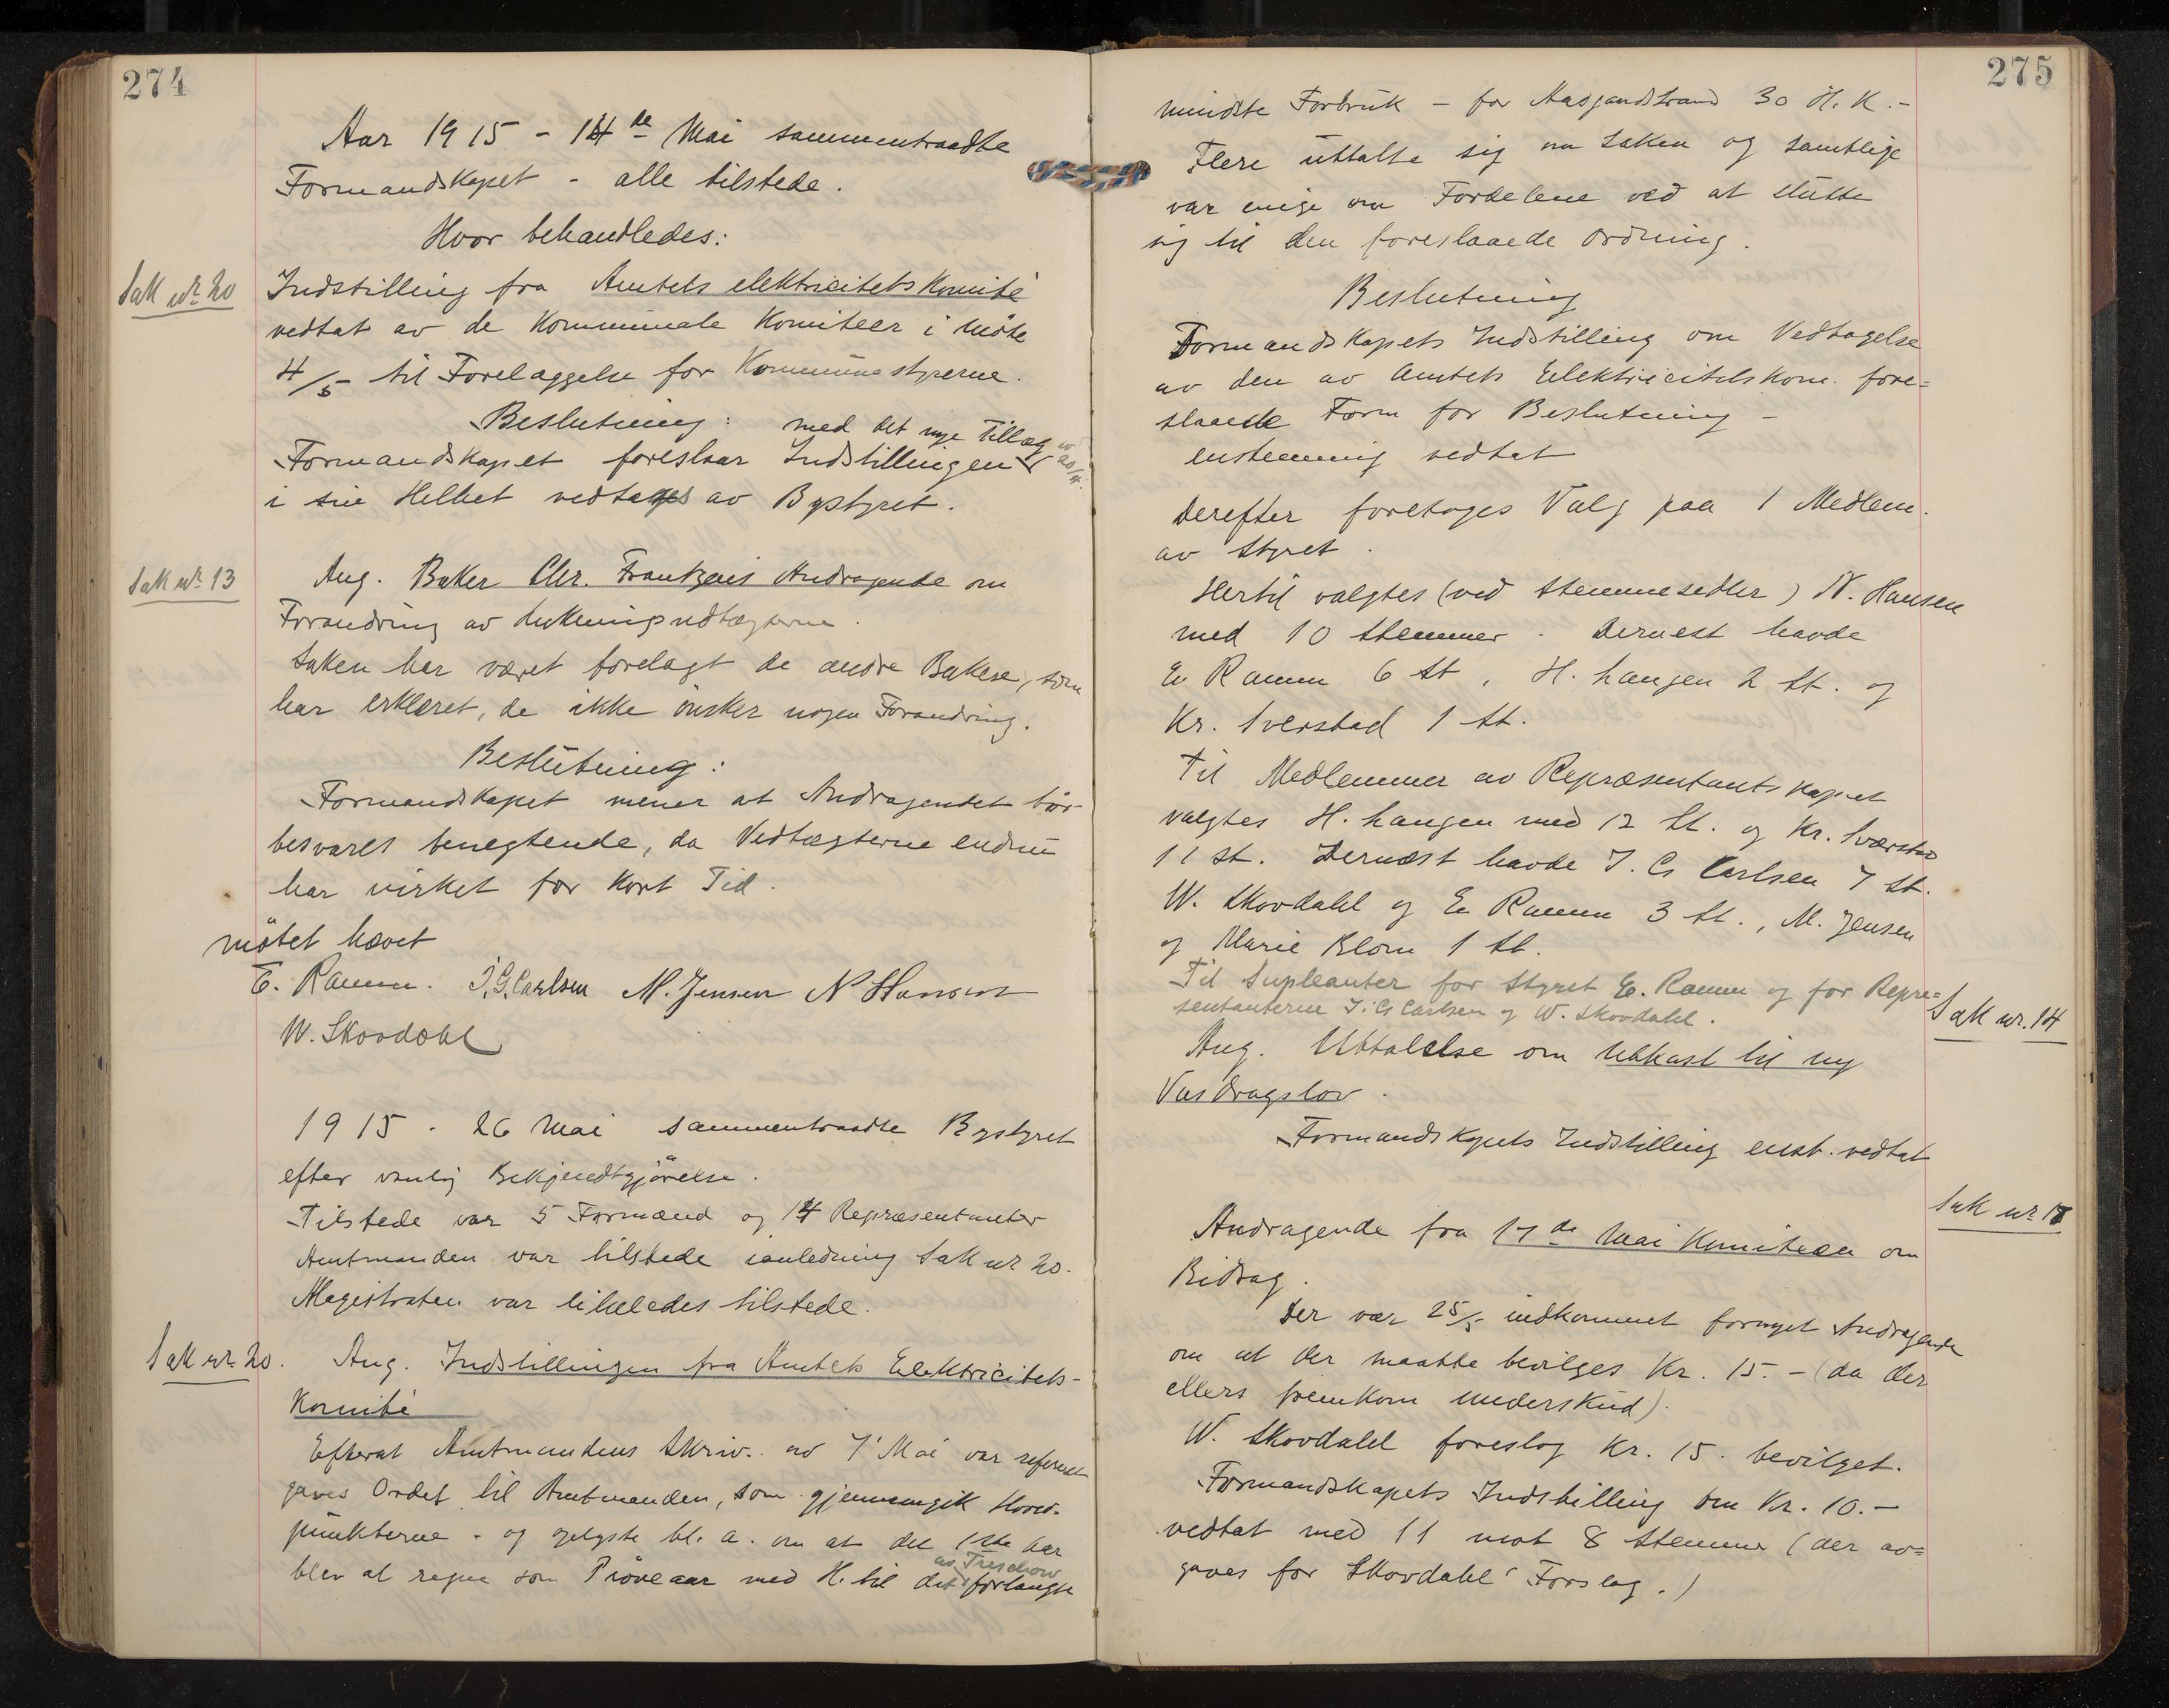 274
Aar 1915 - 14de Mai sammentraadte
Formandskapet - alle tilstede.
Hvor behandledes:
Sak nr 20
Indstilling fra Amtets elektricitetskomité
vedtat av de Kommunale Komiteer i møte
4/5 til Forelæggelse for Kommunestyrerne.
Beslutning: med det nye Tillæg
Formandskapet foreslaar Indstillingen
i sin Helhet vedtages av Bystyret.
Sak nr 13
Aug. Baker Chr. Frantzens Andragende om
Forandring av Lukningsvedtægterne.
Saken har været forelagt de andre Bakere, som
har erklæret, de ikke ønsker nogen Forandring.
Beslutning:
Formandskapet mener at Andragendet bør
besvares benegtende, da Vedtægterne endnu
har virket for kort Tid.
møtet hævet
E. Ramm. J.G. Carlsen M. Jensen N Hansen
W. Skovdahl
1915 - 26 Mai sammentraadte Bystyret
efter vanlig Bekjendtgjørelse.
Tilstede var 5 Formænd og 14 Repræsentanter
Amtmanden var tilstede ianledning Sak nr 20.
Magistraten var likeledes tilstede.
Sak nr 20.
Ang. Indstillingen fra Amtets Elektricitets-
Komité
Efterat Amtmandens Skriv. av 7' Mai var referert
gaves Ordet til Amtmanden, som gjennemgik Hoved-
punkterne - og oplyste bl. a. om at det 1ste Aar
av Treschow
blev at regne som Prøveaar med H. til det forlangte
275
mindste Forbruk - for Aasgaardstrand 30 H. K.-
Flere uttalte sig om Saken og samtlige
var enige om Fordelene ved at slutte
sig til den foreslaaede Ordning.
Beslutning
Formandskapets Indstilling om Vedtagelse
av den av Amtets Elektricitetskom. fore=
slaaede Form for Beslutning -
enstemmig vedtat
Derefter foretoges Valg paa 1 Medlem
av Styret.
Hertil valgtes (ved Stemmesedler) N. Hansen
med 10 Stemmer. Dernest havde
E. Ramm 6 St, H. Langen 2 St. og
Kr. Sverstad 1 St.
Til Medlemmer av Repræsentantskapet
valgtes H. Langen med 12 St. og Kr. Sværstad
11 St. Dernæst havde J. G. Carlsen 7 St.
W. Skovdahl og E. Ramm 3 St., M. Jensen
og Marie Blom 1 St.
Til Supleanter for Styret E. Ramm og for Repre=
sentanterne J. G. Carlsen og W. Skovdahl.
Sak nr. 14
Ang. Uttalelse om Utkast til ny
Vasdragslov.
Formandskapets Indstilling enst. vedtat
Sak nr 18
Andragende fra 17de Mai Komiteen om
Bidrag.
Der var 25/5 indkommet fornyet Andragende
om at der maatte bevilges Kr. 15.- (da der
ellers fremkom Underskud).
W. Skovdahl foreslog Kr. 15. bevilget.
Formandskapets Indstilling om Kr. 10.-
vedtat med 11 mot 8 Stemmer (der av=
gaves for Skovdahl' Forslag.)